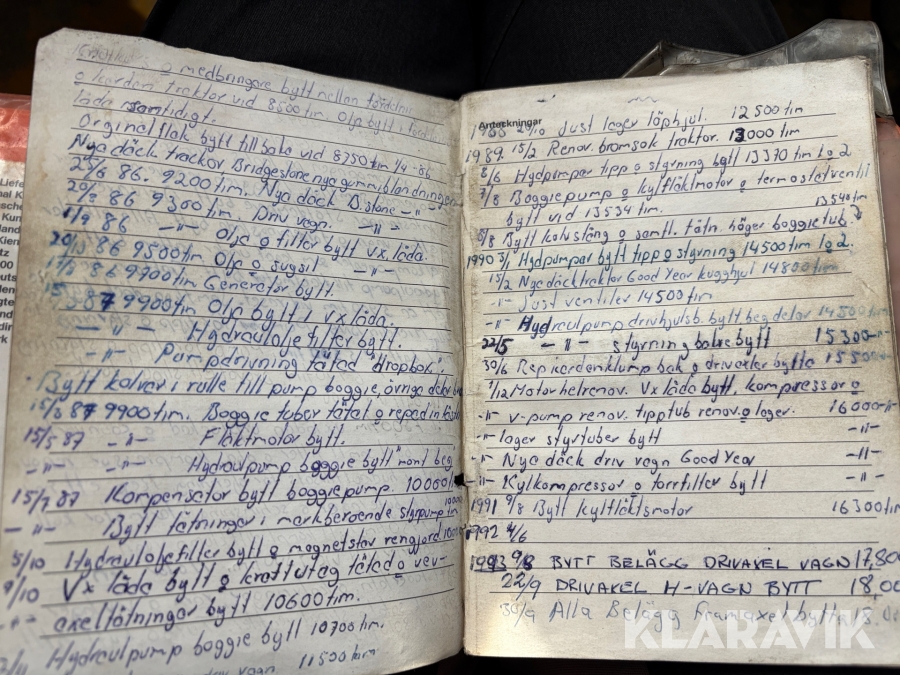 medbringare bytt mellan fördelnr
o kardan traktor vid 8500 tim Olja bytt i
låda samtidigt.
Orginalflak bytt tillbaka vid 8750 tim 1/4-86
Nya däck tracktor Bridgestone nya gummiblandningen
24/6 86. 9200 tim. Nya däck B.stone -"-
20/8 86 9300 tim. Driv vagn. -"-
1/9 86 -"- Olja o filter bytt vx.låda.
86 9500 tim Olja o sugsil -"-
86 9700 tim Generator bytt.
87 9900 tim Olja bytt i vx låda.
-"- Hydrauloljefilter bytt.
-"- Pumpdrivning tätad "dropbox".
Bytt kolvar i rulle till pump boggie, övriga delar
15/3 87 9900 tim. Boggie tuber tätat o reped infästn
15/5 87 -"- Fläktmotor bytt.
-"- -"- Hydraulpump boggie bytt "mont beg
15/7 87 Kompensator bytt boggiepump. 10000 tim
-"- Bytt tätningar i markberoende styrpump 10000 tim
5/10 Hydrauloljefilter bytt o magnetstav rengjord
9/10 Vx låda bytt o kraftutag tätad o vev-
-"- axeltätningar bytt 10600 tim.
Hydraulpump boggie bytt 10700 tim.
vagn. 11500 tim
Liefe
Kun
land
Kien
tz
00
Anteckningar
20/10 Just lager löphjul. 12500 tim
1989. 15/2 Renov. bromsok traktor. 13000 tim
8/6 Hydpumpar tipp o styrning bytt 13370 tim 1o2
7/8 Boggiepump o kylfläktmotor o termostatventil
bytt vid 13534 tim. 13540 tim
8/8 Bytt kolvstång o samtl. tätn. höger boggietub.
1990 3/1 Hydpumpar bytt tipp o styrning 14500 tim 1o2.
15/2 Nya däck traktor Good Year kugghjul 14800 tim
-"- Just ventiler 14500 tim
-"- Hydraulpump drivhjulsb. bytt beg delar 14500 tim
22/5 -"- styrning bakre bytt 15300 -"-
30/6 Rep kardanklump bak o drivaxlar bytta 15500
1/12 Motor helrenov. Vx låda bytt. kompressor o
-"- v-pump renov. tipptub renov. o lager. 16000 -"-
-"- lager styrtuber bytt -"-
-"- Nya däck driv vagn Good Year -"-
-"- Kylkompressor o torrfilter bytt -"-
1991 9/8 Bytt kylfläktsmotor 16300 tim
1992 4/6
1993 9/8 BYTT BELÄGG DRIVAXEL VAGN 17,800
22/9 DRIVAXEL H-VAGN BYTT 18,00
30/9 Alla Belägg Framaxel bytta 18.
KLARAVIK